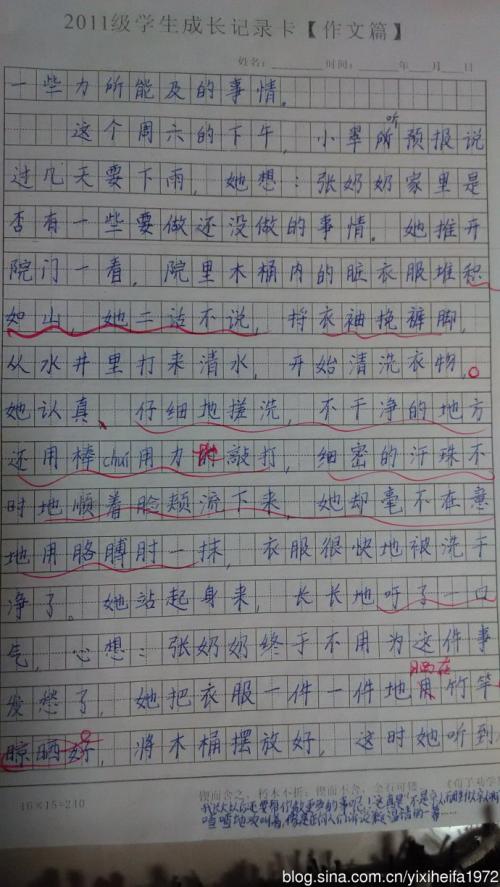 2011级学生成长记录卡【作文篇】
姓名: 时间: 年 月 日
一些力所能及的事情。
这个周六的下午，小翠听所预报说
过几天要下雨，她想：张奶奶家里是
否有一些要做还没做的事情。她推开
院门一看，院里木桶内的脏衣服堆积
如山，她二话不说，捋衣袖挽裤脚，
从水井里打来清水，开始清洗衣物。
她认真、仔细地搓洗，不干净的地方
还用棒chui用力敲打，细密的汗珠不
时地顺着脸颊流下来，她却毫不在意
地用胳膊肘一抹，衣服很快地被洗干
净了。她站起身来，长长地呼了一口
气，心想：张奶奶终于不用为这件事
发愁了，她把衣服一件一件地用晒在竹竿
晾晒好，将木桶摆放好，这时她听到
16×15=240
锲而舍之，朽木不折；锲而不舍，金石可镂。
blog.sina.com.cn/yixiheifa1972